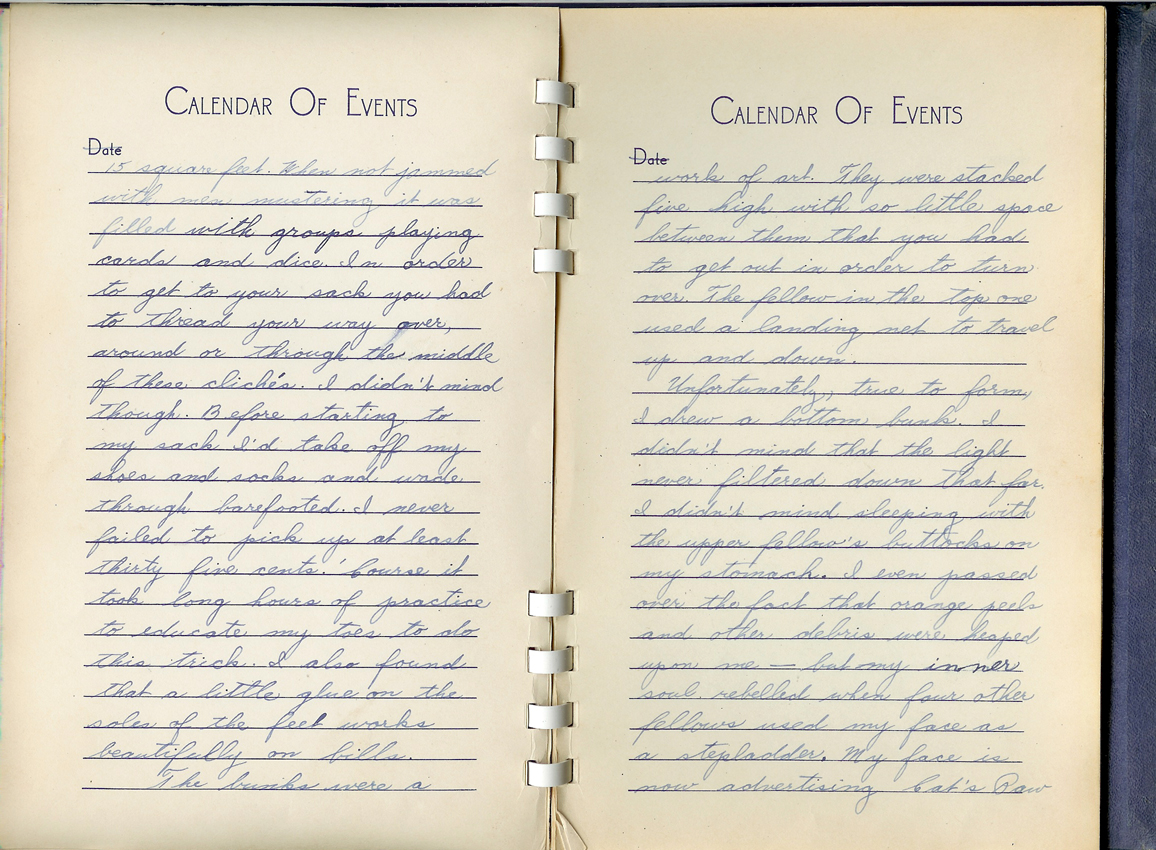 CALENDAR OF EVENTS
Date
15 square feet. When not jammed
with men mustering it was
filled with groups playing
cards and dice. In order
to get to your sack you had
to thread your way over,
around or through the middle
of these clichés. I didn't mind
though. Before starting to
my sack I'd take off my
shoes and socks and wade
through barefooted. I never
failed to pick up at least
thirty five cents. 'Course it
took long hours of practice
to educate my toes to do
this trick. I also found
that a little glue on the
soles of the feet works
beautifully on bills.
The bunks were a
CALENDAR OF EVENTS
Date
work of art. They were stacked
five high with so little space
between them that you had
to get out in order to turn
over. The fellow in the top one
used a landing net to travel
up and down.
Unfortunately, true to form,
I drew a bottom bunk. I
didn't mind that the light
never filtered down that far.
I didn't mind sleeping with
the upper fellow's buttocks on
my stomach. I even passed
over the fact that orange peels
and other debris were heaped
upon me — but my inner
soul rebelled when four other
fellows used my face as
a stepladder. My face is
now advertising Cat's Paw